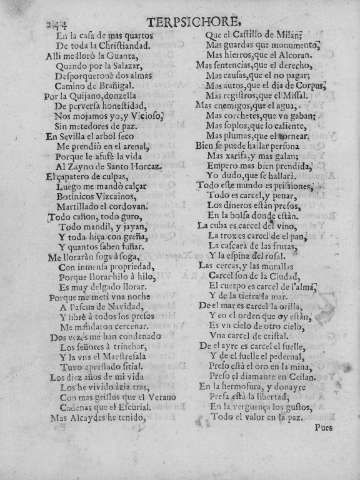 244 TERPSICHORE,
En la casa de mas quartos
De toda la Christiandad.
Alli me lloró la Guanta,
Quando por la Salazar,
Desporqueroné dos almas
Camino de Brañigal.
Por la Quijano, donzella
De perversa honestidad,
Nos mojamos yo, y Vicioso,
Sin metedores de paz.
En Sevilla el arbol seco
Me prendió en el arenal,
Porque le afufé la vida
Al Zayno de Santo Horcaz.
El çapatero de culpas,
Luego me mandò calçar
Botinicos Vizcainos,
Martillado el cordovan.
Todo cañon, todo guro,
Todo mandil, y jayan,
Y toda hiça con greña,
Y quantos saben fuñar.
Me lloraron soga à soga,
Con inmensa propriedad,
Porque llorar hilo à hilo,
Es muy delgado llorar.
Porque me metí vna noche
A Pascua de Navidad,
Y librè à todos los presos
Me mandaron cercenar.
Dos vezes me han condenado
Los señores à trinchar,
Y la vna el Maestresala
Tuvo aprestado sitial.
Los diez años de mi vida
Los he vivido àzia tras,
Con mas grillos que el Verano
Cadenas que el Escurial.
Mas Alcaydes he tenido,
Que el Castillo de Milan;
Mas guardas que monumento,
Mas hierros, que el Alcoran.
Mas sentencias, que el derecho,
Mas causas, que el no pagar;
Mas autos, que el dia de Corpus,
Mas registros, que el Missal.
Mas enemigos, que el agua,
Mas corchetes, que vn gaban;
Mas soplos, que lo caliente,
Mas plumas, que el tornear.
Bien se puede hallar persona
Mas xarifa, y mas galan;
Empero mas bien prendida,
Yo dudo, que se hallarà.
Todo este mundo es prisiones,
Todo es carcel, y penar,
Los dineros estàn presos,
En la bolsa donde estàn.
La cuba es carcel del vino,
La trox es carcel del pan,
La cascara de las frutas,
Y la espina del rosal.
Las cercas, y las murallas
Carcel son de la Ciudad,
El cuerpo es carcel de l'alma,
Y de la tierra la mar.
De el mar es carcel la orilla,
Y en el orden que oy estàn,
Es vn cielo de otro cielo,
Vna carcel de cristal.
De el ayre es carcel el fuelle,
Y de el fuego el pedernal,
Preso està el oro en la mina,
Preso el diamante en Ceilan.
En la hermosura, y donayre
Presa està la libertad,
En la verguença los gustos,
Todo el valor en la paz.
Pues